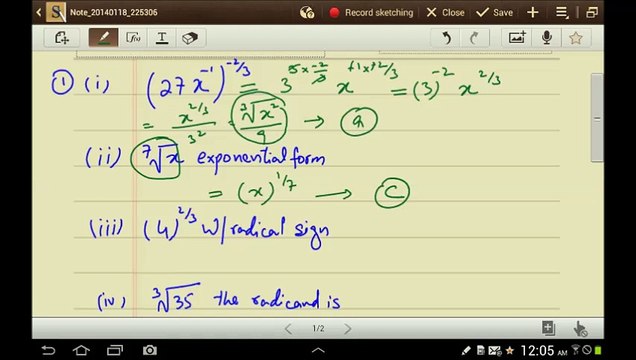 Note_20140118_225306
Record sketching
Close
Save
① (i) (27x⁻¹)^-2/3 = 3^3×-2/3 x^-1×-2/3 = (3)⁻² x^2/3
= x^2/3 / 3² = ∛x² / 9 → ⓐ
(ii) ⁷√x exponential form
= (x)^1/7 → ⓒ
(iii) (4)^2/3 w/radical sign
(iv) ³√35 the radicand is
1/2
12:05 AM